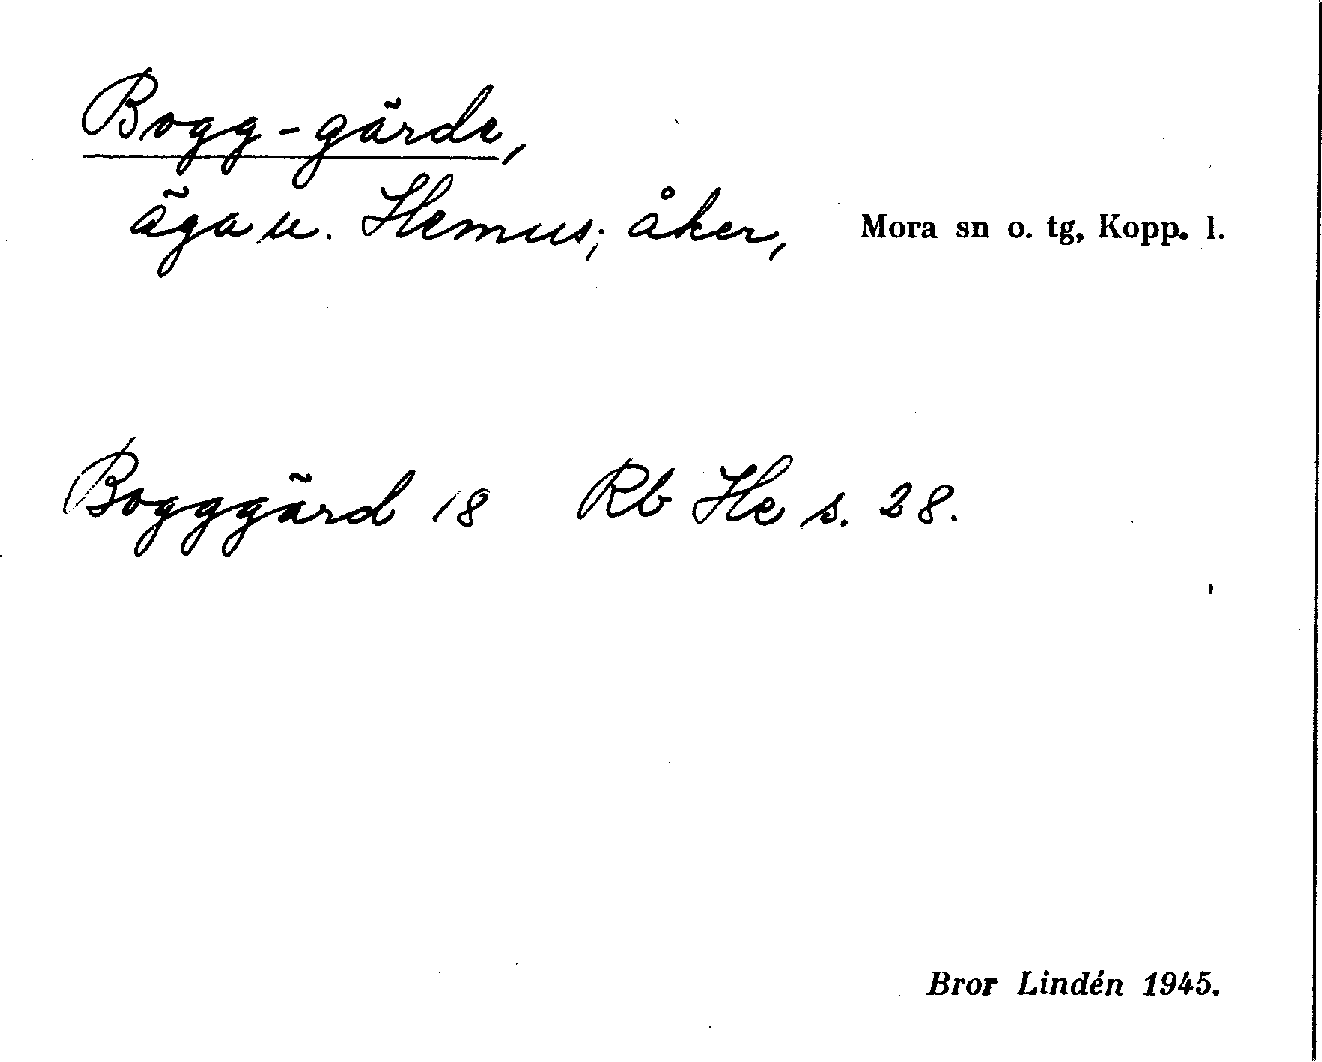 Bogg-gärde,
äga u. Hemus; åker, Mora sn o. tg, Kopp. l.
Bogggärd 18 Rb He s. 28.
Bror Lindén 1945.